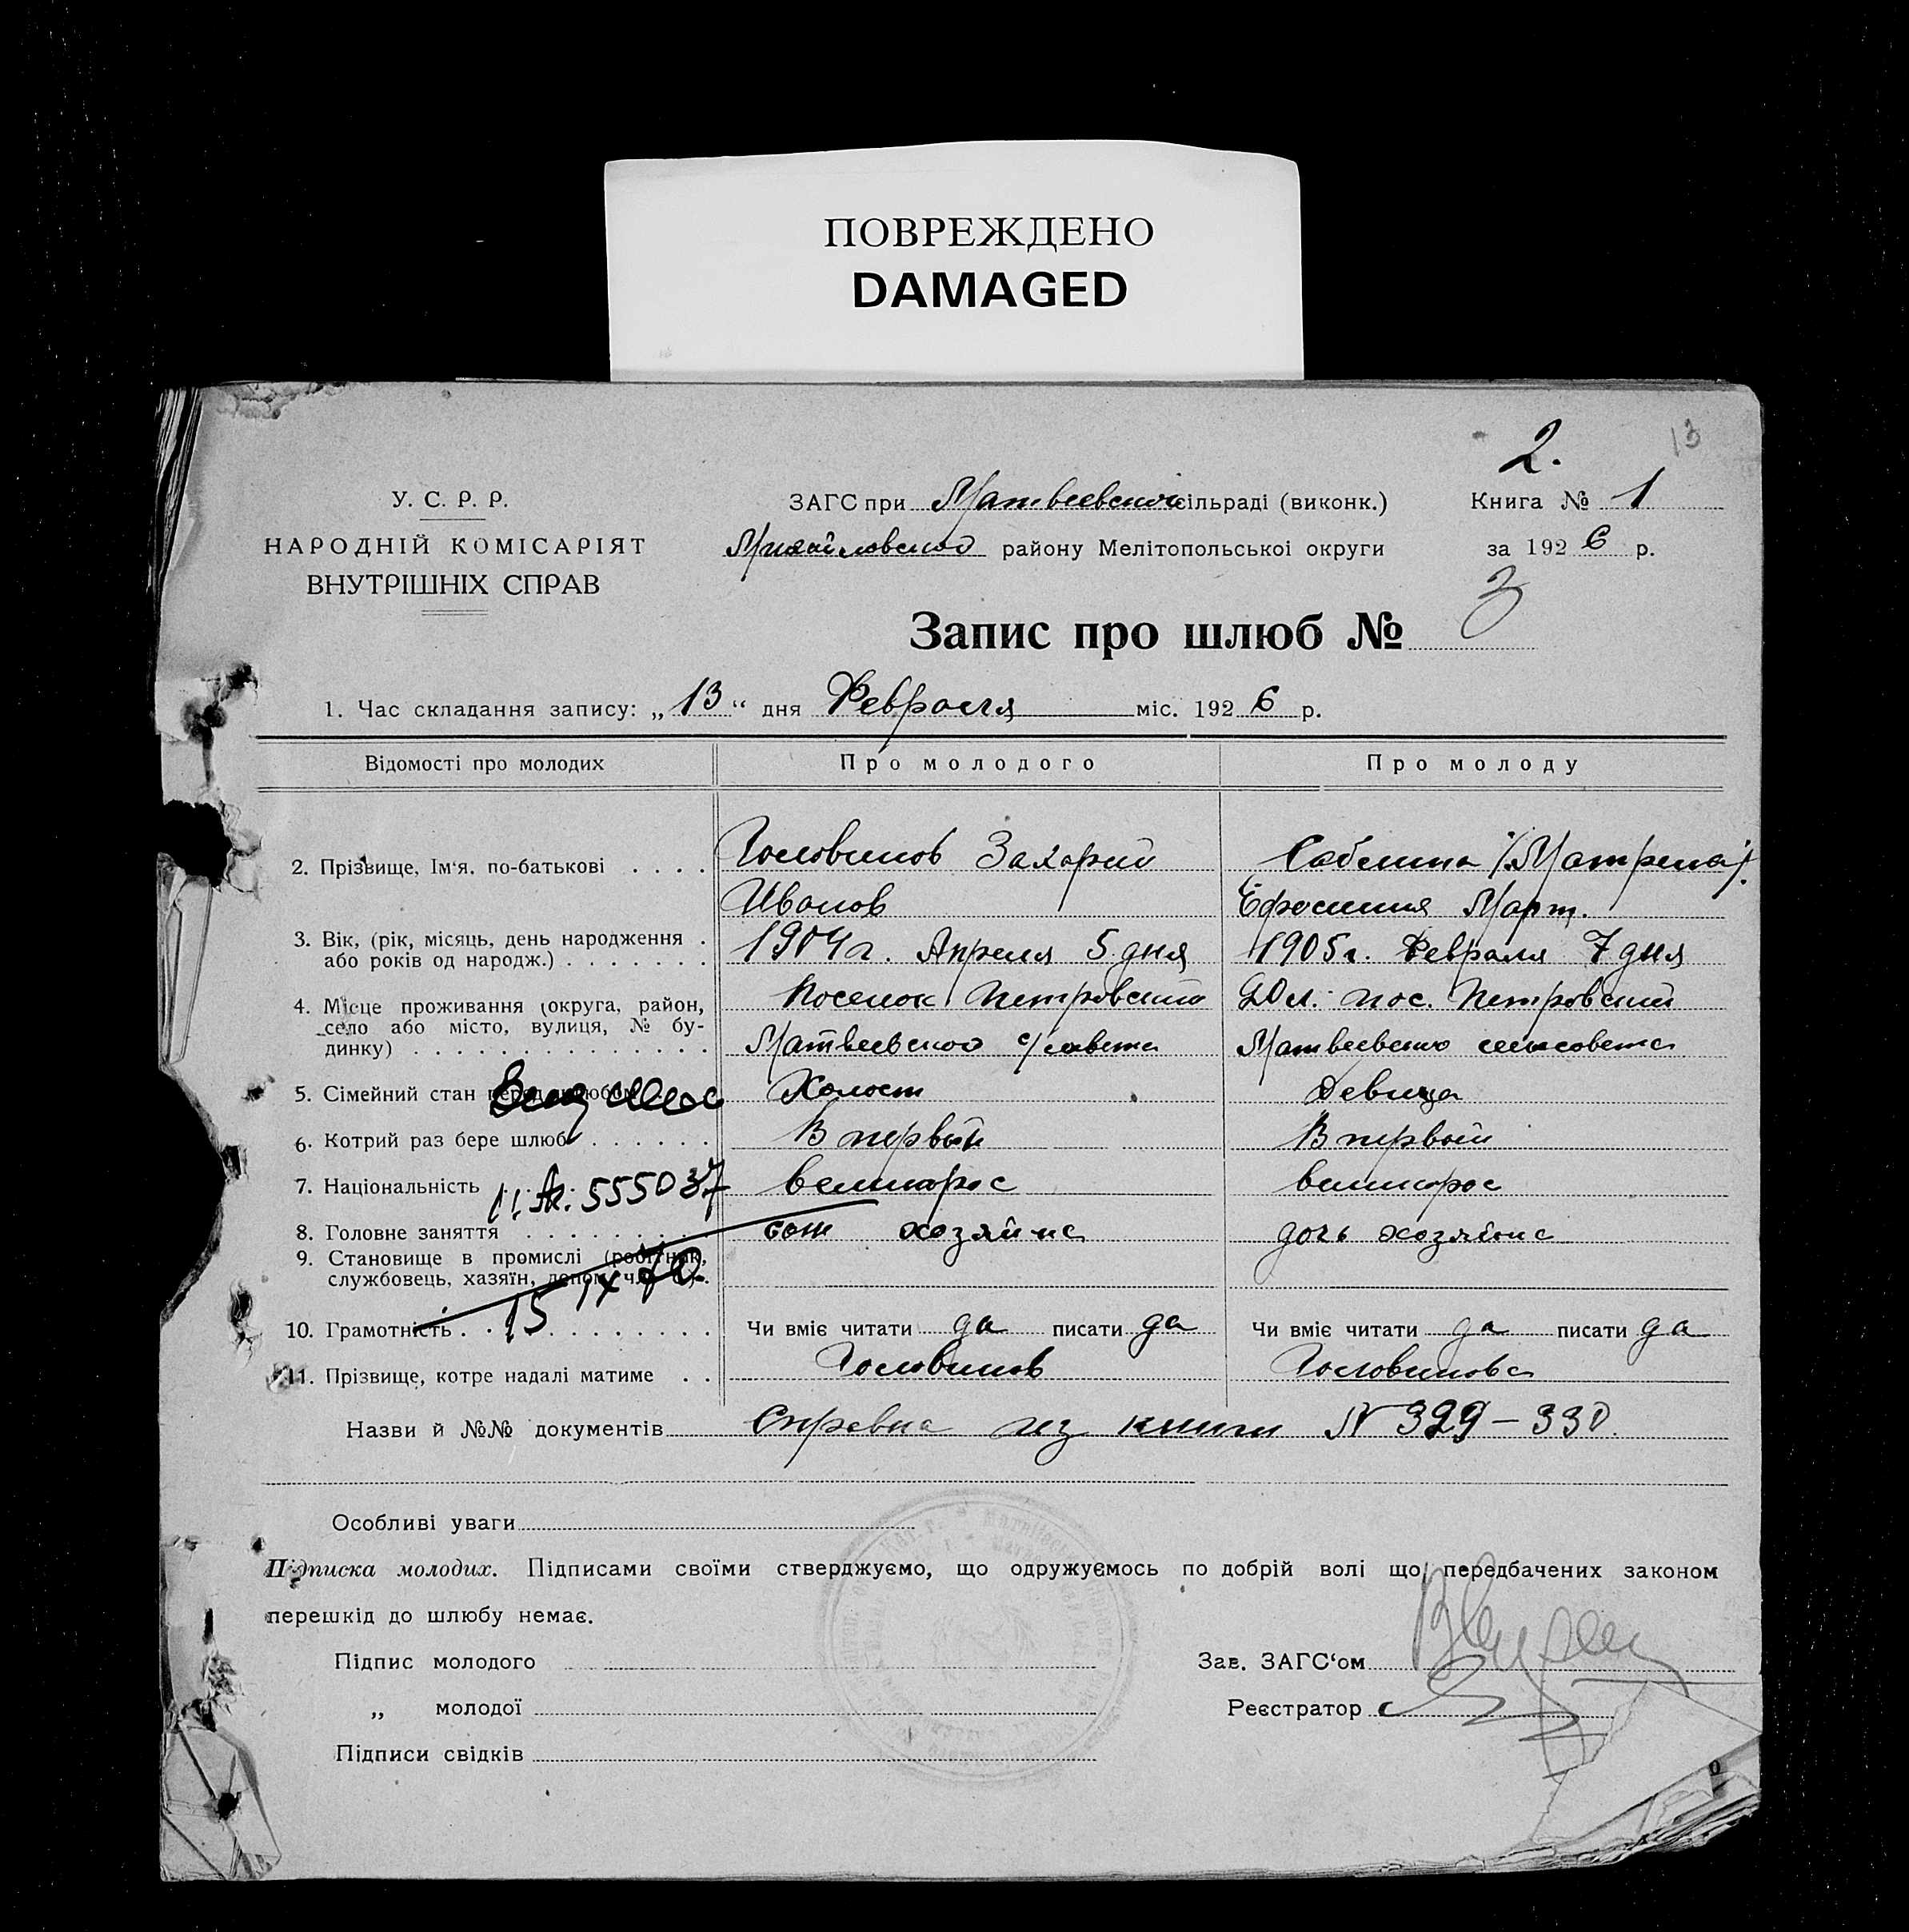 ПОВРЕЖДЕНО
DAMAGED
2.
13
У. С. Р. Р.
НАРОДНІЙ КОМІСАРІЯТ
ВНУТРІШНІХ СПРАВ
ЗАГС при Матвеевской сільраді (виконк.)
Михайловского району Мелітопольської округи
Книга № 1
за 1926 р.
Запис про шлюб № 3
1. Час складання запису: „13“ дня Февраля міс. 1926 р.
Відомості про молодих
Про молодого
Про молоду
2. Прізвище, Ім‘я, по-батькові . . . .
Головинов Захарий
Иванов
Саблина /Матрена/.
Ефросиния Март.
3. Вік, (рік, місяць, день народження .
або років од народж.) . . . . . . .
1904 г. Апреля 5 дня
1905 г. Февраля 7 дня
4. Місце проживання (округа, район,
село або місто, вулиця, № бу-
динку) . . . . . . . . . . . . . . .
Поселок Петровский
Матвеевского с/совета
пос. Петровский
Матвеевского сельсовета
5. Сімейний стан перед шлюбом
Холост
Девица
6. Котрий раз бере шлюб . . . . . .
В первый
В первый
7. Національність
555037
великорос
великорос
8. Головне заняття . . . . . . . . .
сын хозяина
дочь хозяина
9. Становище в промислі (робітник,
службовець, хазяїн, допом. чл. с.) .
15 IX 70
10. Грамотність . . . . . . . . . . .
Чи вміє читати да писати да
Чи вміє читати да писати да
11. Прізвище, котре надалі матиме . .
Головинов
Головинова
Назви й №№ документів Справка из книги № 329 – 330.
Особливі уваги
Підписка молодих. Підписами своїми стверджуємо, що одружуємось по добрій волі що передбачених законом
перешкід до шлюбу немає.
Підпис молодого
„ молодої
Підписи свідків
Зав. ЗАГС‘ом
Реєстратор